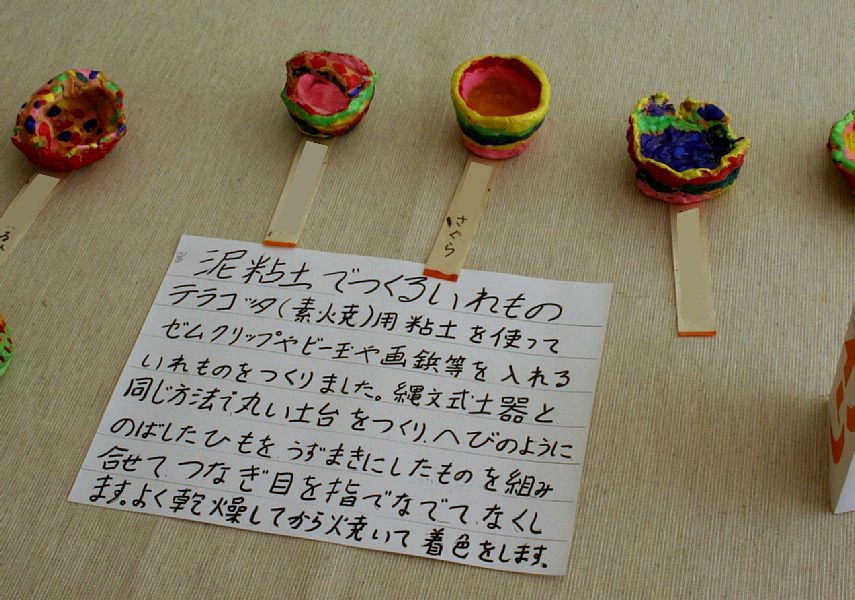 さくら
泥粘土でつくるいれもの
テラコッタ(素焼)用粘土を使って
ゼムクリップやビー玉や画鋲等を入れる
いれものをつくりました。縄文式土器と
同じ方法で丸い土台をつくり、へびのように
のばしたひもをうずまきにしたものを組み
合せてつなぎ目を指でなでて、なくし
ます。よく乾燥してから焼いて着色をします。